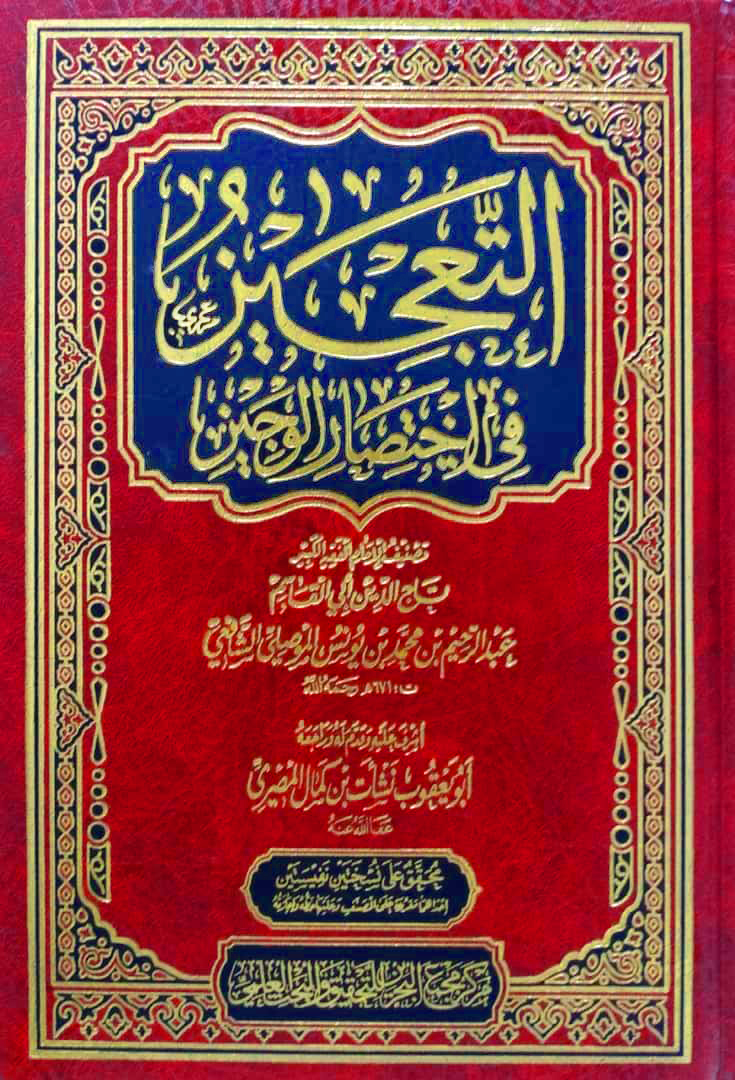 التَّعجِيزُ
فِي اخْتِصَارِ الوَجِيزِ
تصنيف الإمام الفقيه الكبير
تاج الدين أبي القاسم
عبد الرحيم بن محمد بن يونس الموصلي الشافعي
ت: ٦٧١هـ رحمه الله
أشرف عليه وقدم له وراجعه
أبو يعقوب نشأت بن كمال المصري
عفا الله عنه
محقق على نسختين نفيستين
إحداهما مقروءة على المصنف وعليها خطه وإجازته
مركز مجمع البحرين للتحقيق والبحث العلمي